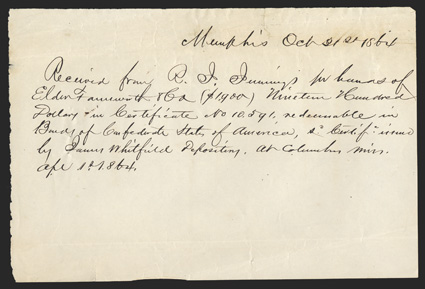 Memphis Oct 21st 1864
Received from R. J. Jennings pr hands of
Elder & Co ($1900) Nineteen Hundred
Dollars in Certificate No 10.591, redeemable in
Bonds of Confederate States of America, sd Certift issued
by James Whitfield Depositary, at Columbus Miss.
Apl 1st 1864.